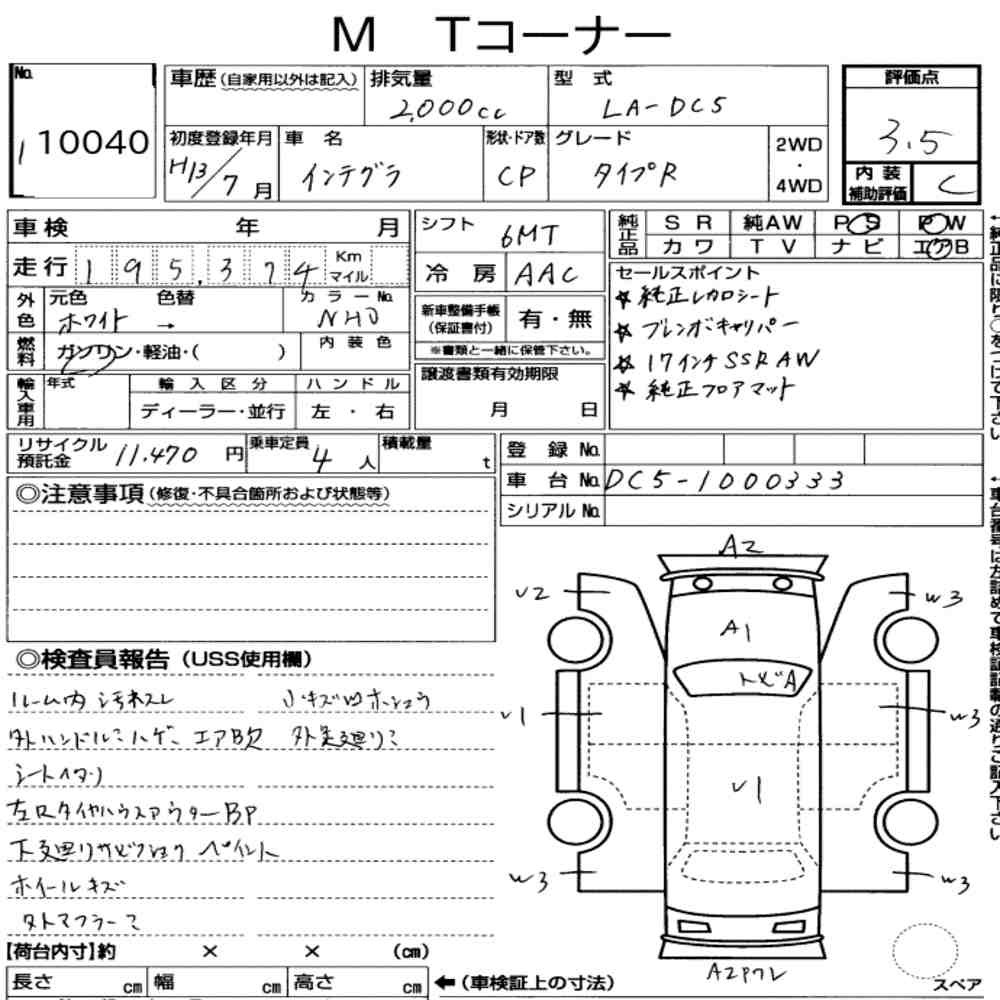 M Tコーナー
No. 1 10040
車歴(自家用以外は記入) 排気量 2,000cc 型式 LA-DC5
評価点 3.5
初度登録年月 H13/7月 車名 インテグラ 形状・ドア数 CP グレード タイプR 2WD・4WD
内装補助評価 C
車検 年 月
シフト 6MT
純正品 SR 純AW PS PW
カワ TV ナビ エアB
走行 195,374 Km マイル
冷房 AAC
セールスポイント
☆純正レカロシート
☆ブレンボキャリパー
☆17インチSSR AW
☆純正フロアマット
外色 元色 ホワイト 色替 → カラーNo. NH0
新車整備手帳(保証書付) 有・無
※書類と一緒に保管下さい。
燃料 ガソリン・軽油・( ) 内装色
譲渡書類有効期限
月 日
輸入車用 年式 輸入区分 ハンドル
ディーラー・並行 左・右
リサイクル預託金 11.470円 乗車定員 4人 積載量 t
登録No.
車台No. DC5-1000333
シリアルNo.
◎注意事項(修復・不具合箇所および状態等)
◎検査員報告(USS使用欄)
ルーム内 汚れスレ 小キズ凹
外ハンドルミハゲ エアB欠
シート
左Rタイヤハウスアウター BP
下廻りサビ ペイント
ホイールキズ
外マフラーミ
A2
U2 W3
A1
トビA
U1 W3
U1
W3 W3
A2Pワレ
スペア
【荷台内寸】約 × × (cm)
長さ cm 幅 cm 高さ cm ←(車検証上の寸法)
←純正品に限り○をつけて下さい
←車台番号は左詰めで車検証記載の通りご記入下さい